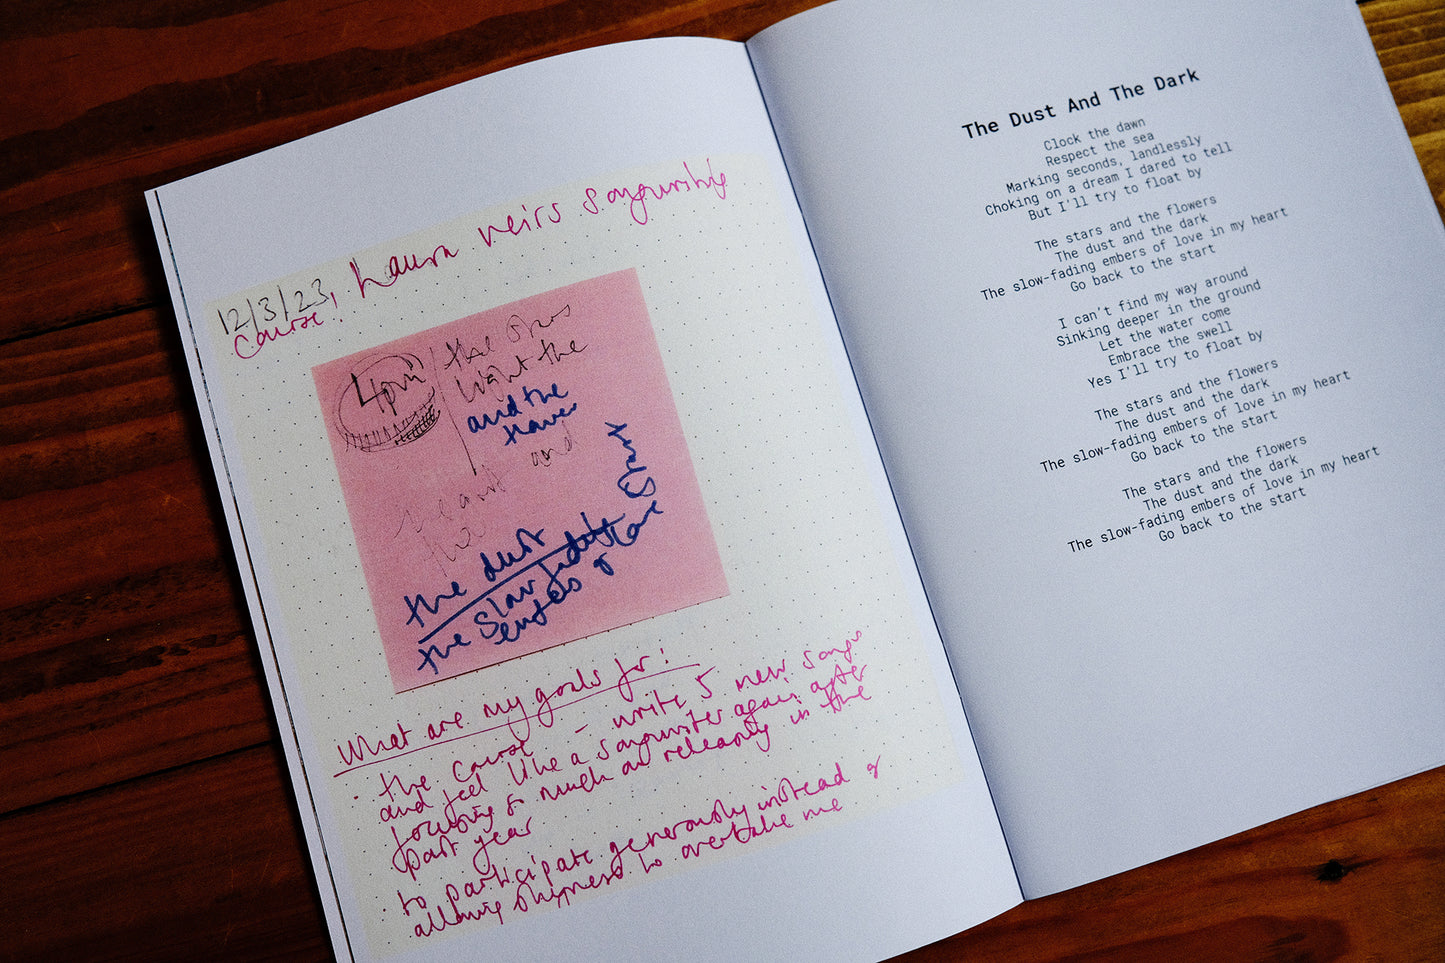 12/3/23, Laura Veirs songwriting
course.
4pm
the
light the
and the
and
the
the dust
the slow fade
embers of love
start
What are my goals for:
· the course - write 5 new songs
and feel like a songwriter again after
focusing so much on releasing in the
past year
to participate generously instead of
allowing shyness to overtake me
The Dust And The Dark
Clock the dawn
Respect the sea
Marking seconds, landlessly
Choking on a dream I dared to tell
But I'll try to float by
The stars and the flowers
The dust and the dark
The slow-fading embers of love in my heart
Go back to the start
I can't find my way around
Sinking deeper in the ground
Let the water come
Embrace the swell
Yes I'll try to float by
The stars and the flowers
The dust and the dark
The slow-fading embers of love in my heart
Go back to the start
The stars and the flowers
The dust and the dark
The slow-fading embers of love in my heart
Go back to the start